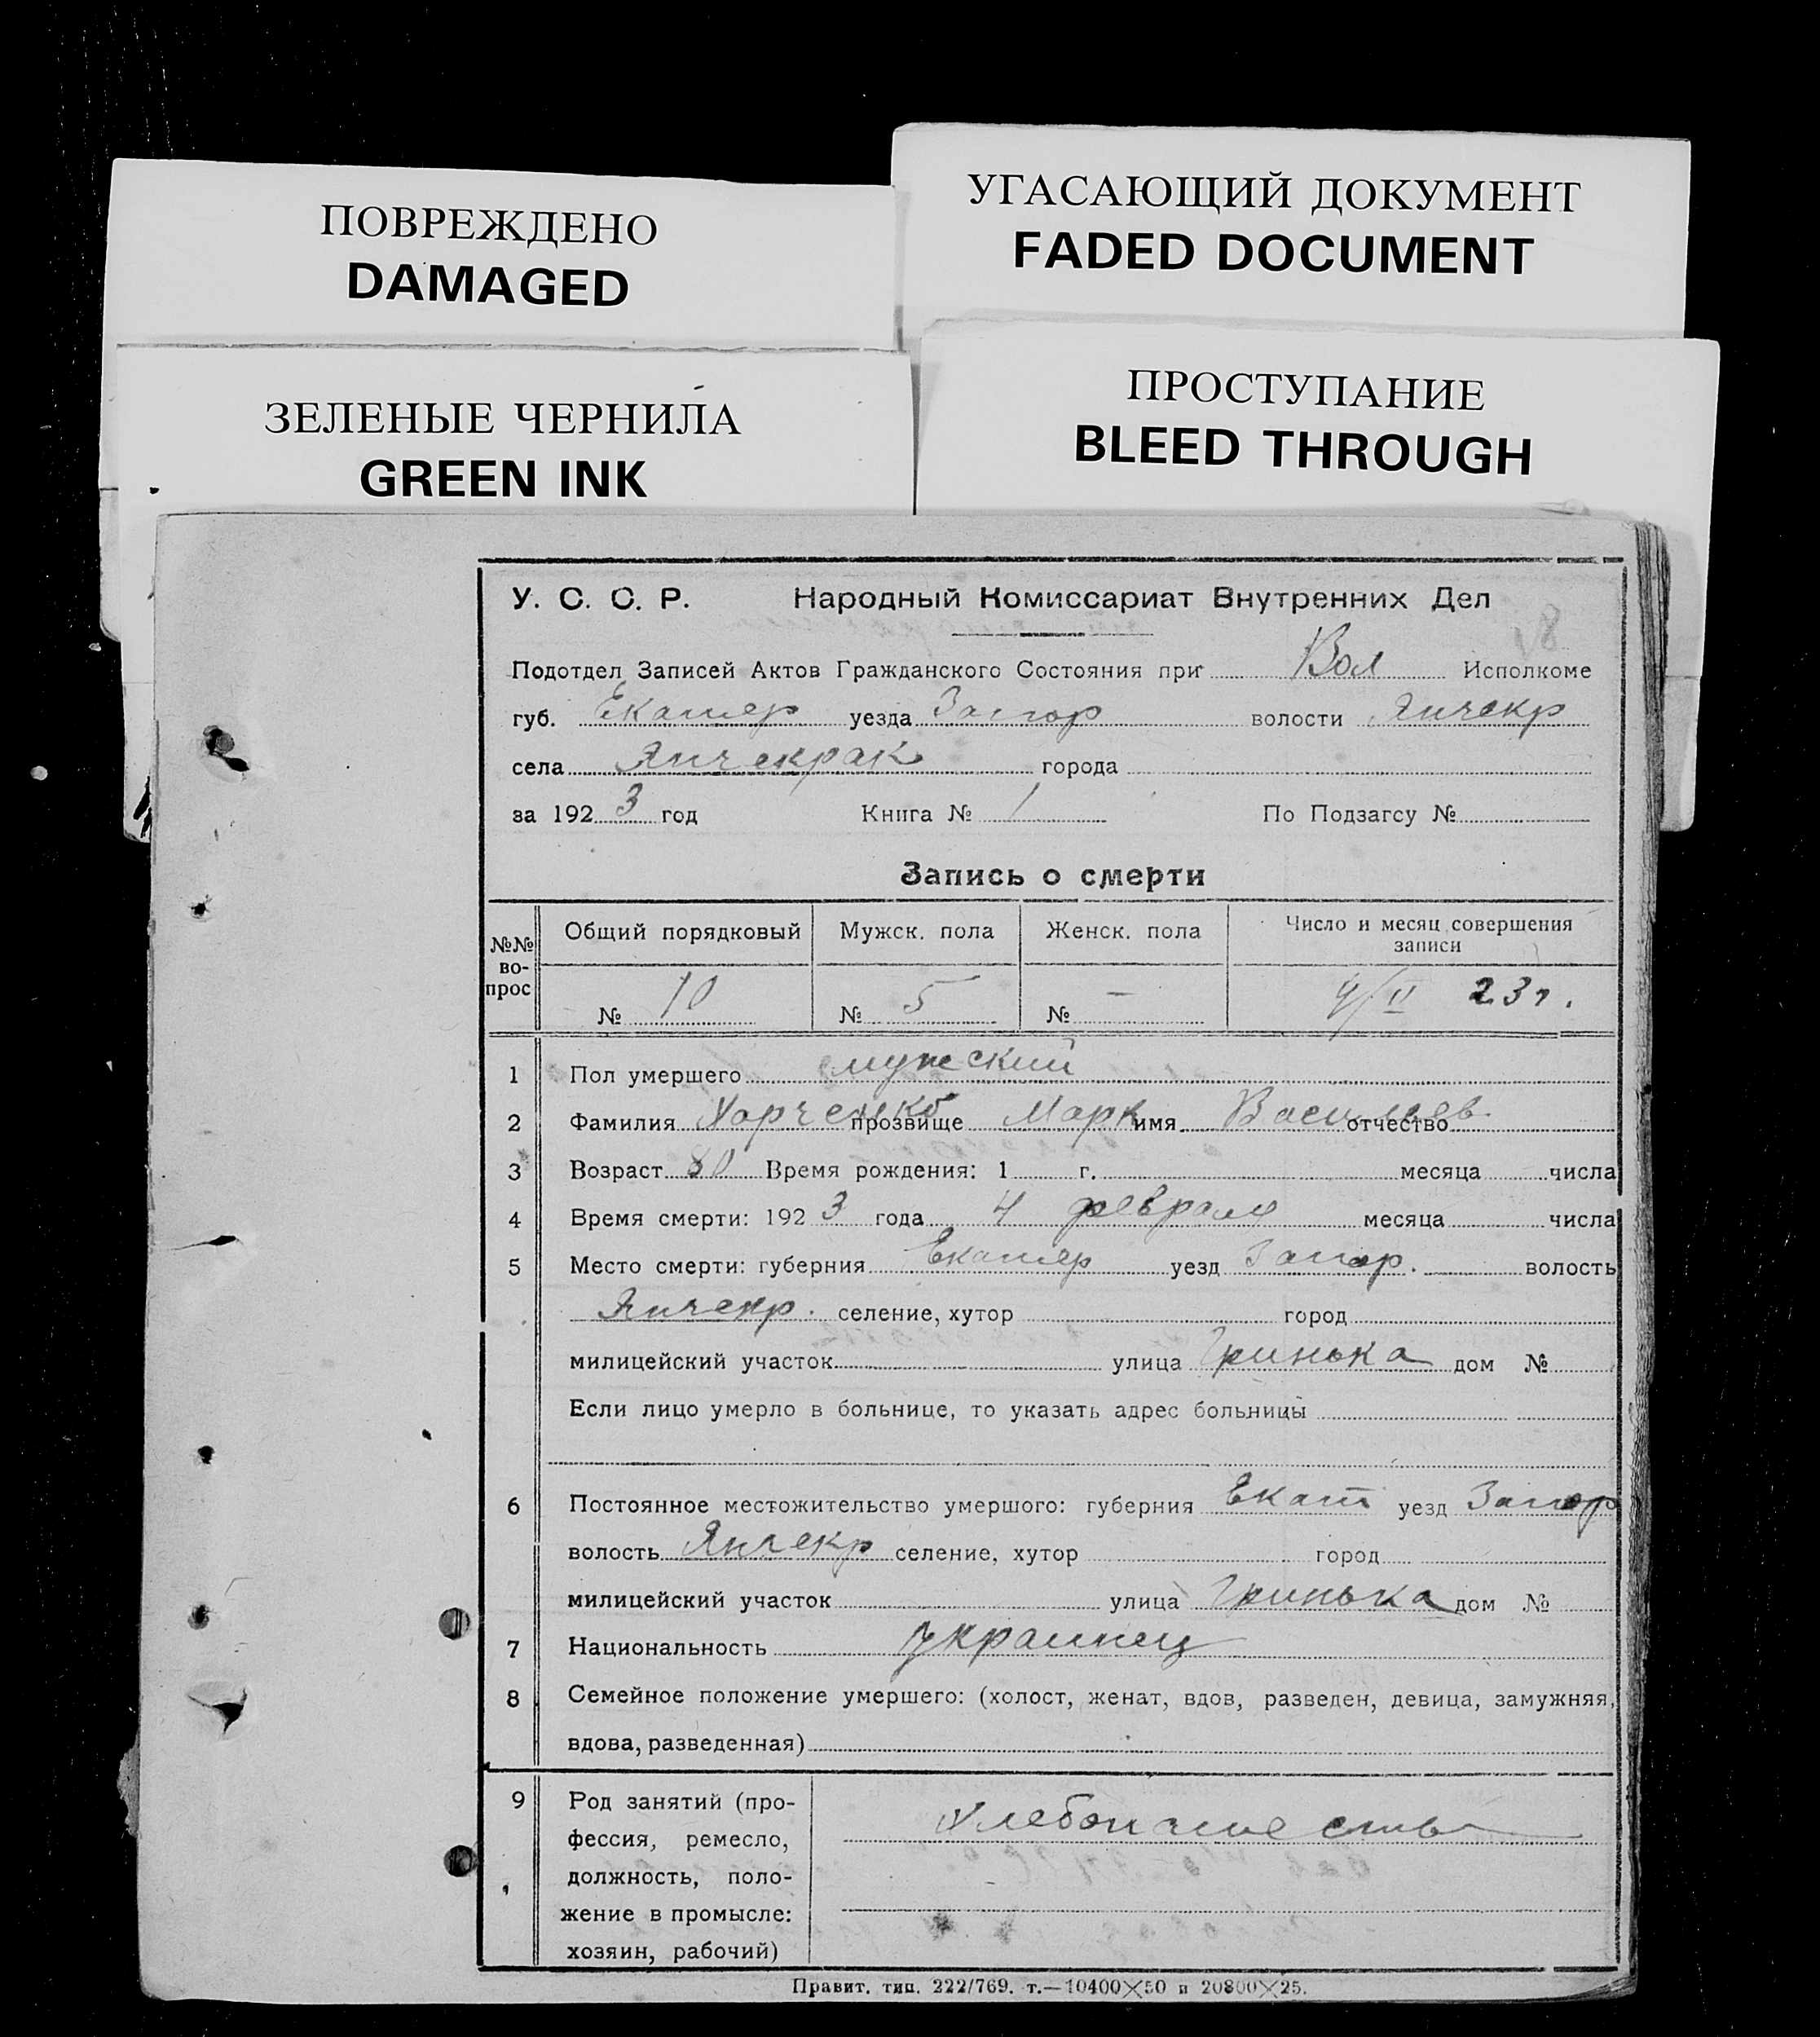 ПОВРЕЖДЕНО
DAMAGED
УГАСАЮЩИЙ ДОКУМЕНТ
FADED DOCUMENT
ЗЕЛЕНЫЕ ЧЕРНИЛА
GREEN INK
ПРОСТУПАНИЕ
BLEED THROUGH
У. С. С. Р. Народный Комиссариат Внутренних Дел
Подотдел Записей Актов Гражданского Состояния при Вол Исполкоме
губ. Екатер уезда Запор волости Янчекр
села Янчекрак города
за 1923 год Книга № 1 По Подзагсу №
Запись о смерти
№№ во-прос Общий порядковый Мужск. пола Женск. пола Число и месяц совершения записи
№ 10 № 5 № — 4/II 23 г.
1 Пол умершего мужский
2 Фамилия Харченко прозвище Марк имя Васильев отчество
3 Возраст 80 Время рождения: 1 г. месяца числа
4 Время смерти: 1923 года 4 февраля месяца числа
5 Место смерти: губерния Екатер уезд Запор. волость
Янчекр. селение, хутор город
милицейский участок улица Гринька дом №
Если лицо умерло в больнице, то указать адрес больницы
6 Постоянное местожительство умершого: губерния Екат уезд Запор
волость Янчекр селение, хутор город
милицейский участок улица Гринька дом №
7 Национальность украинец
8 Семейное положение умершего: (холост, женат, вдов, разведен, девица, замужняя,
вдова, разведенная)
9 Род занятий (про-
фессия, ремесло,
должность, поло-
жение в промысле:
хозяин, рабочий)
Правит. тип. 222/769. т.—10400×50 и 20800×25.